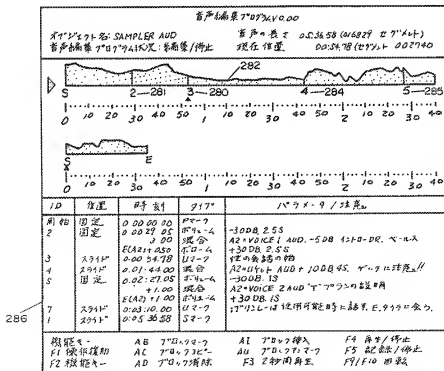 音声編集プログラムV0.00
オブジェクト名: SAMPLER AUD 音声の長さ 05:36.58 (016829 セグメント)
音声編集プログラム状況: 編集/停止 現在位置 00:54.78 (セグメント 002740
282
S 2 281 3 280 4 284 5 285
0 10 20 30 40 50 1 10 20 30 40 50 2 10 20 30 40
S E
0 10 20 30 40 50 1 10 20 30 40 50 2 10 20 30 40
ID 位置 時刻 タイプ パラメータ/注意
開始 固定 0:00:00.00 Pマーク
2 固定 0:00:29.05 ボリューム -30DB, 2.5S
3.00 混合 A2=VOICE1 AUD, -5DB イントロ-DR.
E(A2)+0.50 ボリューム +30DB, 2.5S
3 スライド 0:00:54.78 Uマーク 他の会話の始
4 スライド 0:01:44.00 混合 AUD +10DB
5 固定 0:02:27.05 ボリューム -30DB, 1S
+1.00 混合 A2=VOICE 2 AUD
E(A2)+1.00 ボリューム +30DB, 1S
7 スライド 0:03:10.00 Uマーク
スライド 0:05:36.58 Sマーク
286
機能キー AB ブロックマーク AI ブロック挿入 F4 再生/停止
F1 操作援助 AC ブロックコピー AU ブロックアンマーク F5 記録/停止
F2 機能キー AD ブロック消除 F3 2秒間再生 F9/F10 回転